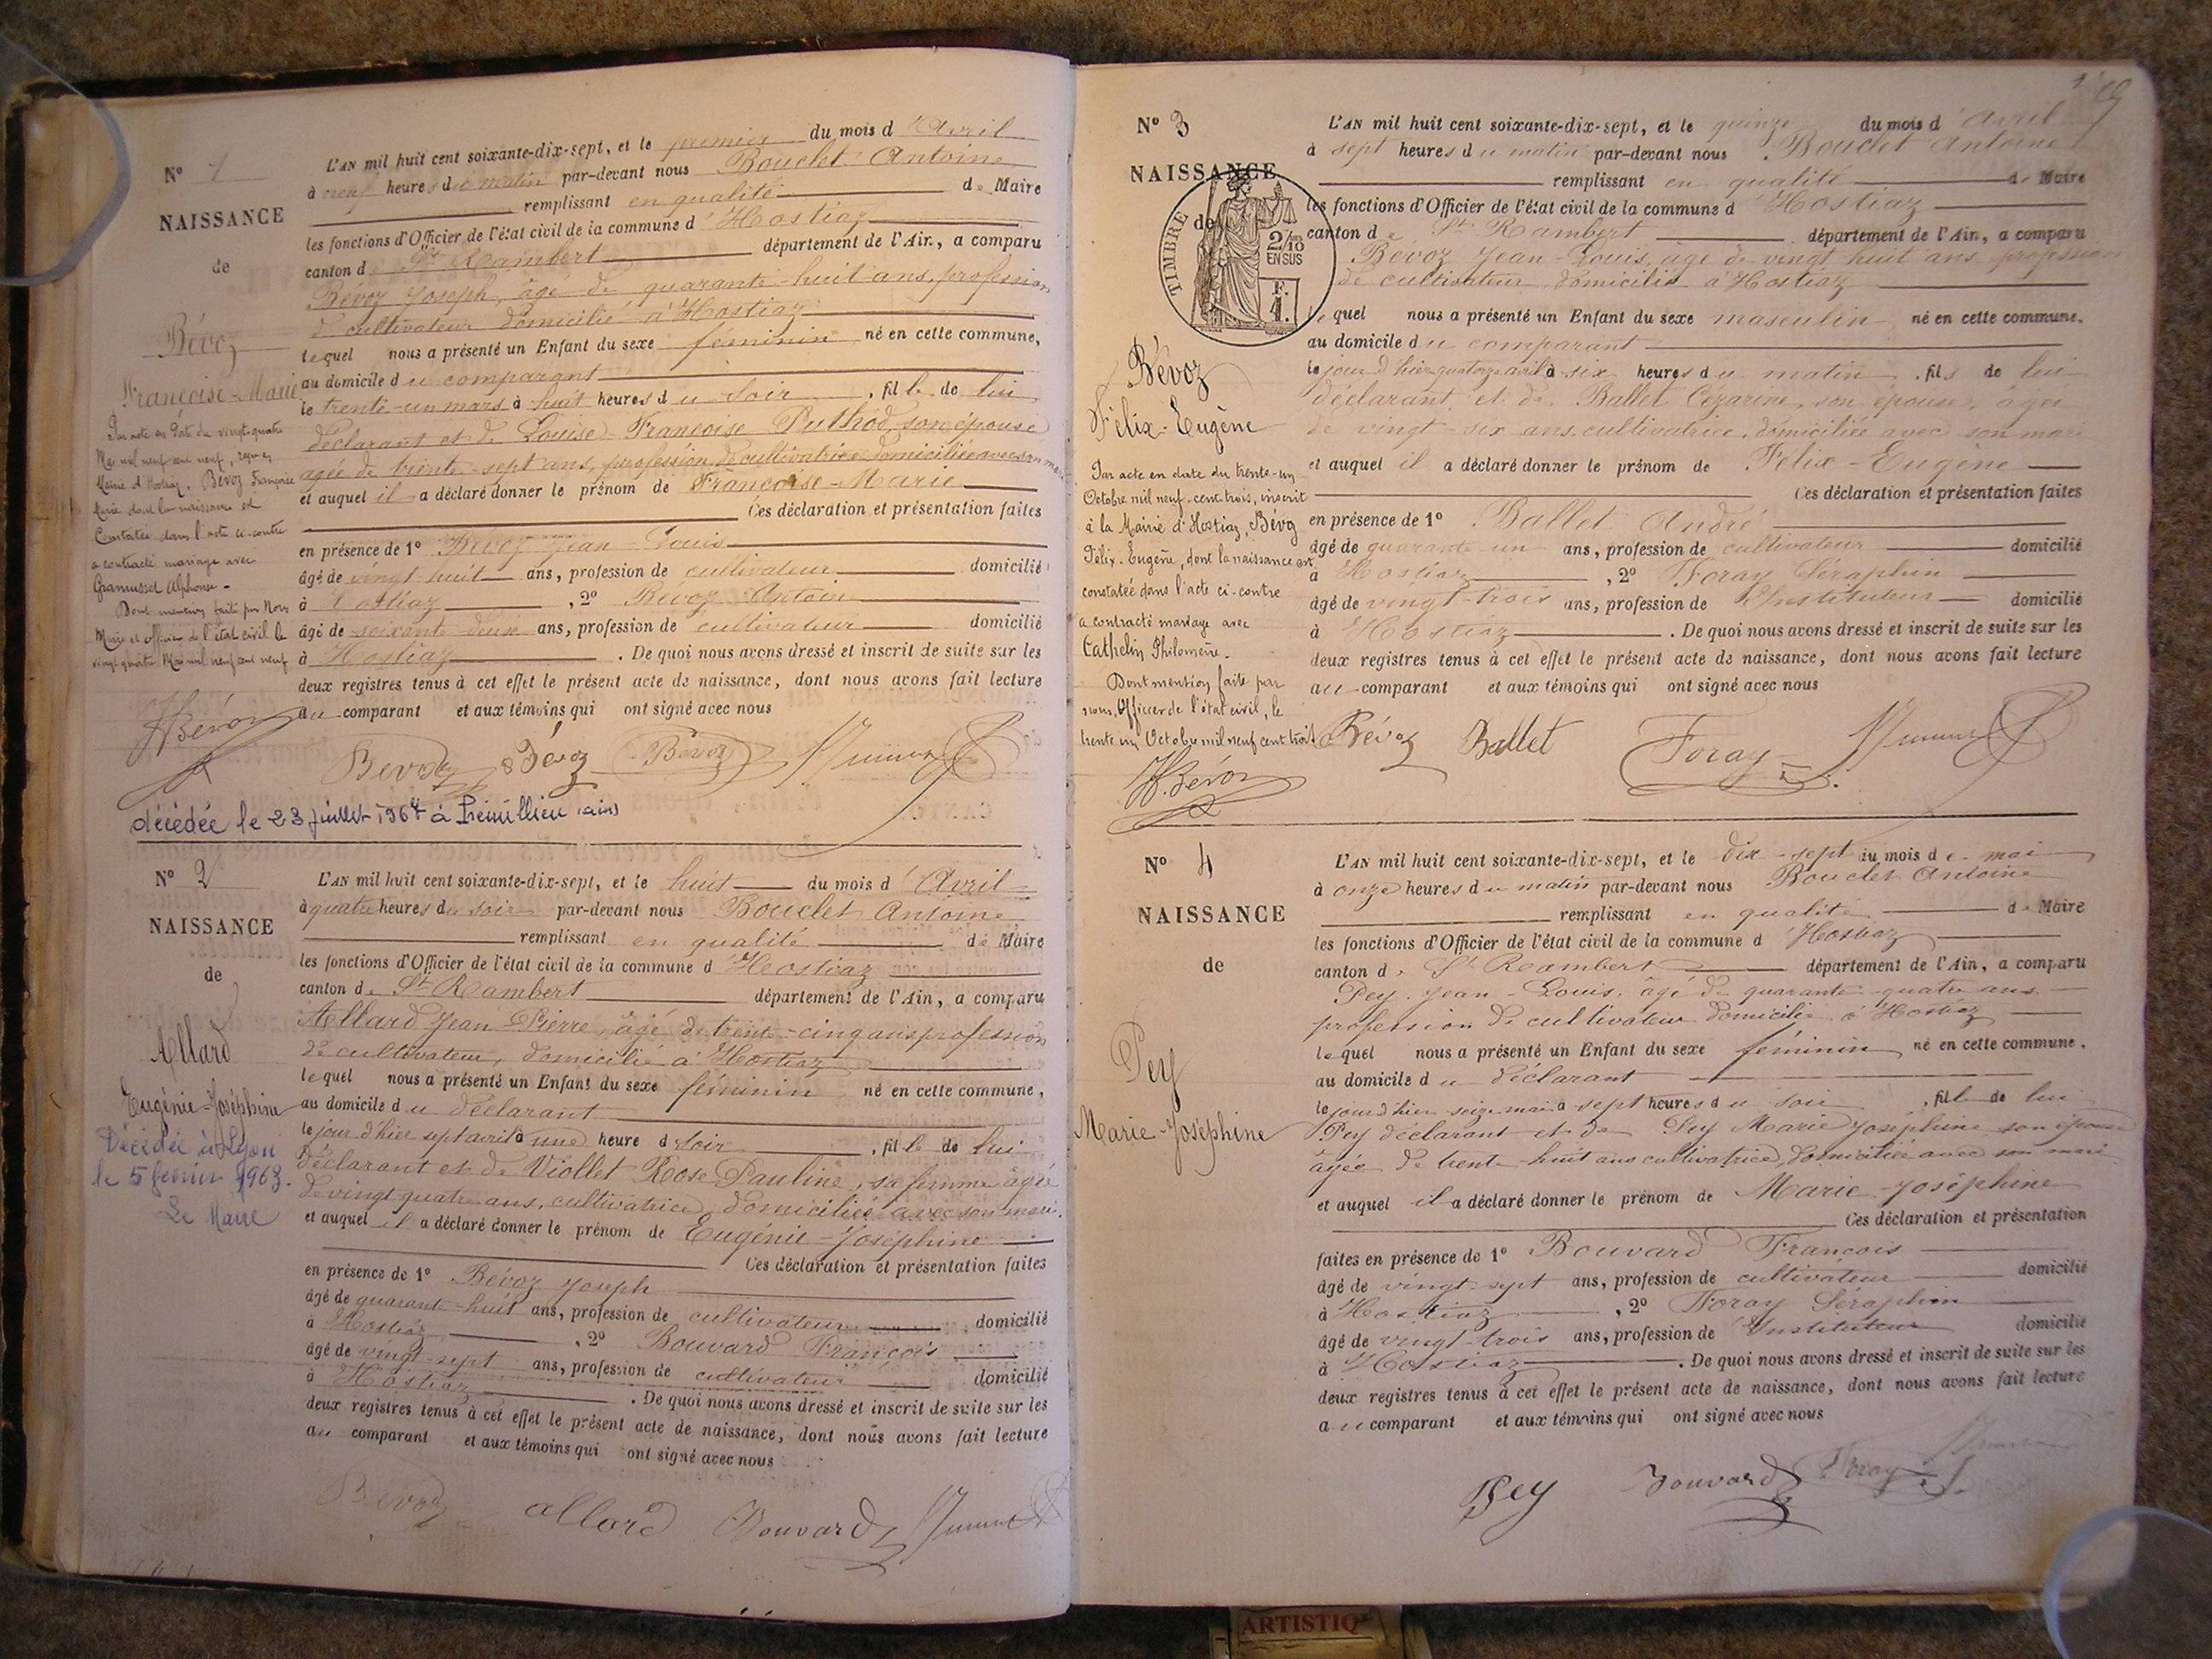 N° 1
NAISSANCE
de
Bévoz
Françoise-Marie
Par acte en date du vingt-quatre
Mai mil neuf cent neuf,
Mairie d'Hostiaz, Bévoz Françoise
Marie dont la naissance est
Constatée dans l'acte ci-contre
a contracté mariage avec
Gramusset Alphonse.
Dont mention faite par Nous
Maire et officier de l'état civil le
vingt quatre Mai mil neuf cent neuf
L'AN mil huit cent soixante-dix-sept, et le premier du mois d'Avril
à neuf heures du matin par-devant nous Bouclet Antoine
remplissant en qualité de Maire
les fonctions d'Officier de l'état civil de la commune d'Hostiaz
canton de St Rambert département de l'Ain, a comparu
Bévoz Joseph, âgé de quarante-huit ans, profession
de cultivateur domicilié à Hostiaz
lequel nous a présenté un Enfant du sexe féminin né en cette commune,
au domicile du comparant
le trente-un mars à huit heures du soir, fille de lui
déclarant et de Louise-Françoise Puthod, son épouse
agée de trente-sept ans, profession de cultivatrice domiciliée avec son mari
et auquel il a déclaré donner le prénom de Françoise-Marie
Ces déclaration et présentation faites
en présence de 1° Bévoz Jean-Louis
âgé de vingt-huit ans, profession de cultivateur domicilié
à Hostiaz, 2° Bévoz Antoine
âgé de soixante deux ans, profession de cultivateur domicilié
à Hostiaz. De quoi nous avons dressé et inscrit de suite sur les
deux registres tenus à cet effet le présent acte de naissance, dont nous avons fait lecture
au comparant et aux témoins qui ont signé avec nous
Bévoz
Bévoz Bévoz Bévoz
décédée le 23 juillet 1964 à Premillieu (ain)
N° 2
NAISSANCE
de
Allard
Eugénie-Joséphine
Décédée à Lyon
le 5 février 1963.
Le Maire
L'AN mil huit cent soixante-dix-sept, et le huit du mois d'Avril
à quatre heures du soir par-devant nous Bouclet Antoine
remplissant en qualité de Maire
les fonctions d'Officier de l'état civil de la commune d'Hostiaz
canton de St Rambert département de l'Ain, a comparu
Allard Jean Pierre, âgé de trente-cinq ans profession
de cultivateur, domicilié à Hostiaz
lequel nous a présenté un Enfant du sexe féminin né en cette commune,
au domicile du déclarant
le jour d'hier sept avril à une heure d soir, fille de lui
déclarant et de Viollet Rose Pauline, sa femme agée
de vingt quatre ans, cultivatrice, domiciliée avec son mari.
et auquel il a déclaré donner le prénom de Eugénie-Joséphine
Ces déclaration et présentation faites
en présence de 1° Bévoz Joseph
âgé de quarante-huit ans, profession de cultivateur domicilié
à Hostiaz, 2° Bouvard François
âgé de vingt-sept ans, profession de cultivateur domicilié
à Hostiaz. De quoi nous avons dressé et inscrit de suite sur les
deux registres tenus à cet effet le présent acte de naissance, dont nous avons fait lecture
au comparant et aux témoins qui ont signé avec nous
Bévoz allard Bouvard
N° 3
NAISSANCE
de
TIMBRE
2/10
EN SUS
F.
4.
Bévoz
Félix-Eugène
Par acte en date du trente-un
Octobre mil neuf cent trois, inscrit
à la Mairie d'Hostiaz, Bévoz
Félix-Eugène, dont la naissance est
constatée dans l'acte ci-contre
a contracté mariage avec
Cathelin Philomène.
Dont mention faite par
nous, Officier de l'état civil, le
trente un Octobre mil neuf cent trois
Bévoz
L'AN mil huit cent soixante-dix-sept, et le quinze du mois d'Avril
à sept heures du matin par-devant nous Bouclet Antoine
remplissant en qualité de Maire
les fonctions d'Officier de l'état civil de la commune d'Hostiaz
canton de St Rambert département de l'Ain, a comparu
Bévoz Jean-Louis, âgé de vingt huit ans profession
de cultivateur domicilié à Hostiaz
lequel nous a présenté un Enfant du sexe masculin né en cette commune.
au domicile du comparant
le jour d'hier quatorze avril à six heures du matin, fils de lui
déclarant et de Ballet Cézarine, son épouse, âgée
de vingt-six ans, cultivatrice, domiciliée avec son mari
et auquel il a déclaré donner le prénom de Félix-Eugène
Ces déclaration et présentation faites
en présence de 1° Ballet André
âgé de quarante un ans, profession de cultivateur domicilié
à Hostiaz, 2° Foray Séraphin
âgé de vingt-trois ans, profession de Instituteur domicilié
à Hostiaz. De quoi nous avons dressé et inscrit de suite sur les
deux registres tenus à cet effet le présent acte de naissance, dont nous avons fait lecture
au comparant et aux témoins qui ont signé avec nous
Bévoz Ballet Foray
N° 4
NAISSANCE
de
Pey
Marie-Joséphine
L'AN mil huit cent soixante-dix-sept, et le dix-sept du mois de mai
à onze heures du matin par-devant nous Bouclet Antoine
remplissant en qualité de Maire
les fonctions d'Officier de l'état civil de la commune d'Hostiaz
canton de St Rambert département de l'Ain, a comparu
Pey Jean-Louis, âgé de quarante quatre ans
profession de cultivateur domicilié à Hostiaz
lequel nous a présenté un Enfant du sexe féminin né en cette commune.
au domicile du déclarant
le jour d'hier seize mai à sept heures du soir, fille de lui
Pey déclarant et de Pey Marie Joséphine son épouse
âgée de trente-huit ans cultivatrice, domiciliée avec son mari
et auquel il a déclaré donner le prénom de Marie-Joséphine
Ces déclaration et présentation
faites en présence de 1° Bouvard François
âgé de vingt sept ans, profession de cultivateur domicilié
à Hostiaz, 2° Foray Séraphin
âgé de vingt-trois ans, profession de Instituteur domicilié
à Hostiaz. De quoi nous avons dressé et inscrit de suite sur les
deux registres tenus à cet effet le présent acte de naissance, dont nous avons fait lecture
au comparant et aux témoins qui ont signé avec nous
Pey Bouvard Foray
ARTISTIQ